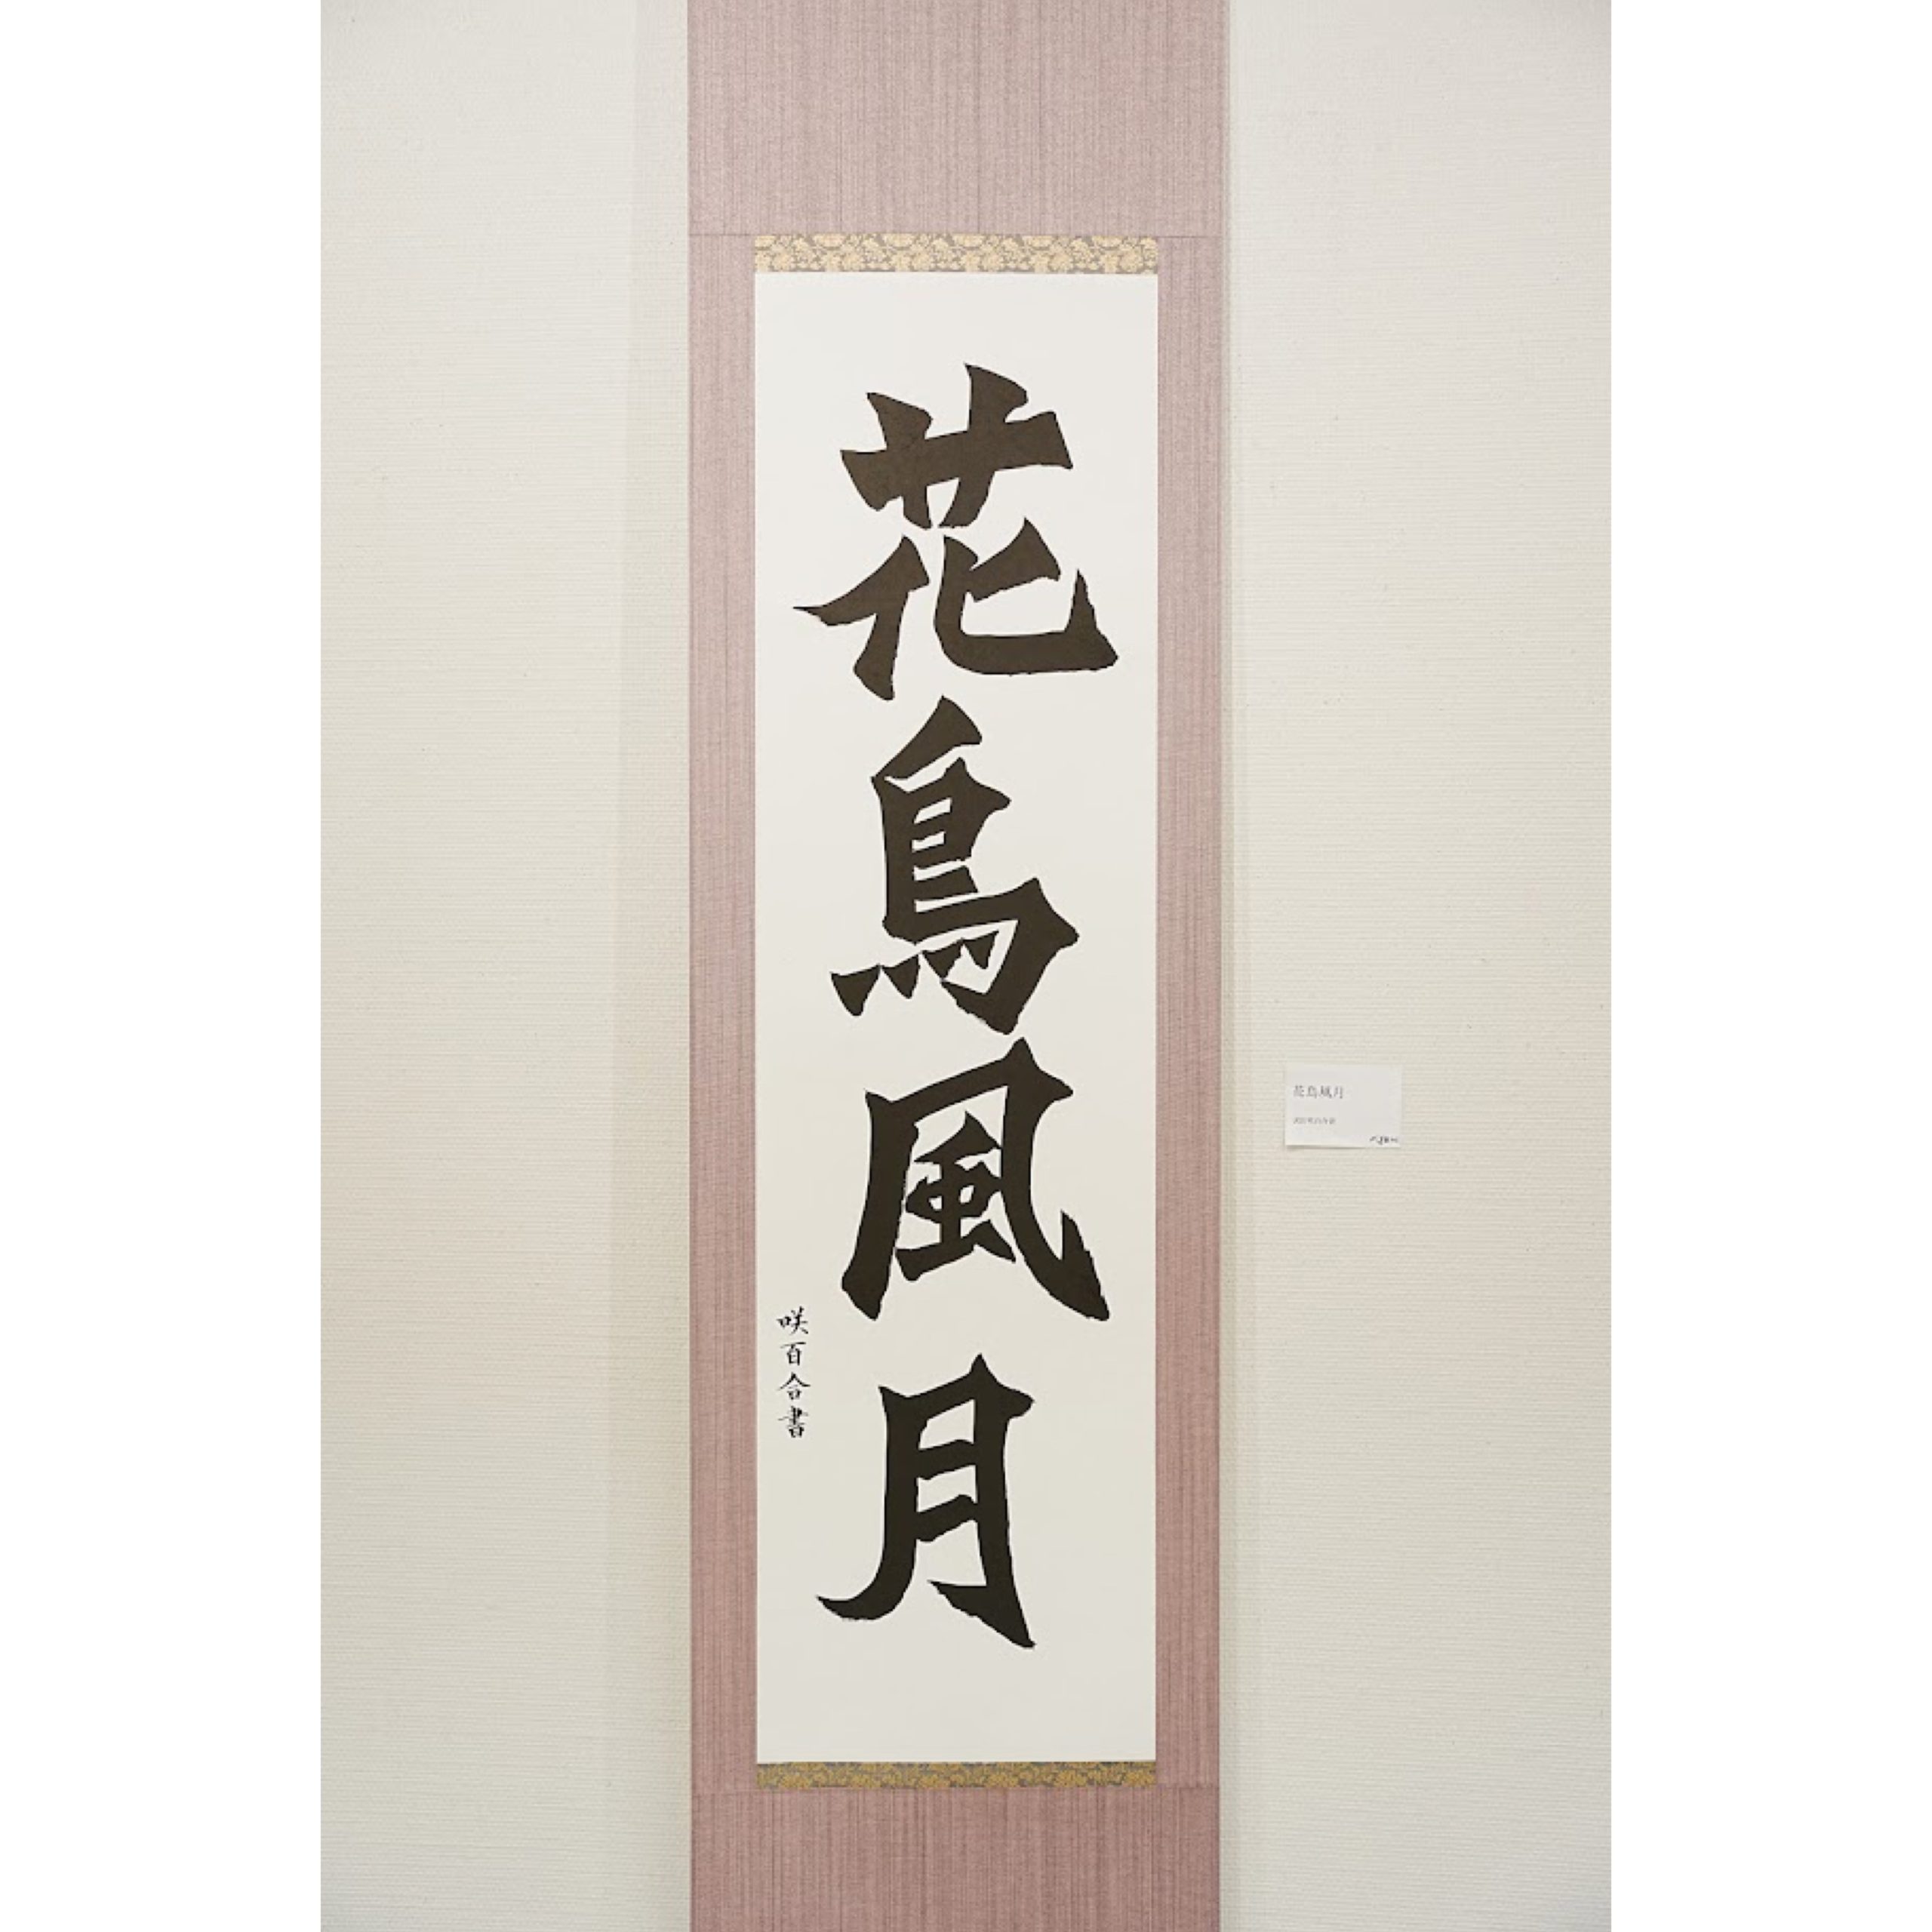 花鳥風月
咲百合書
花鳥風月